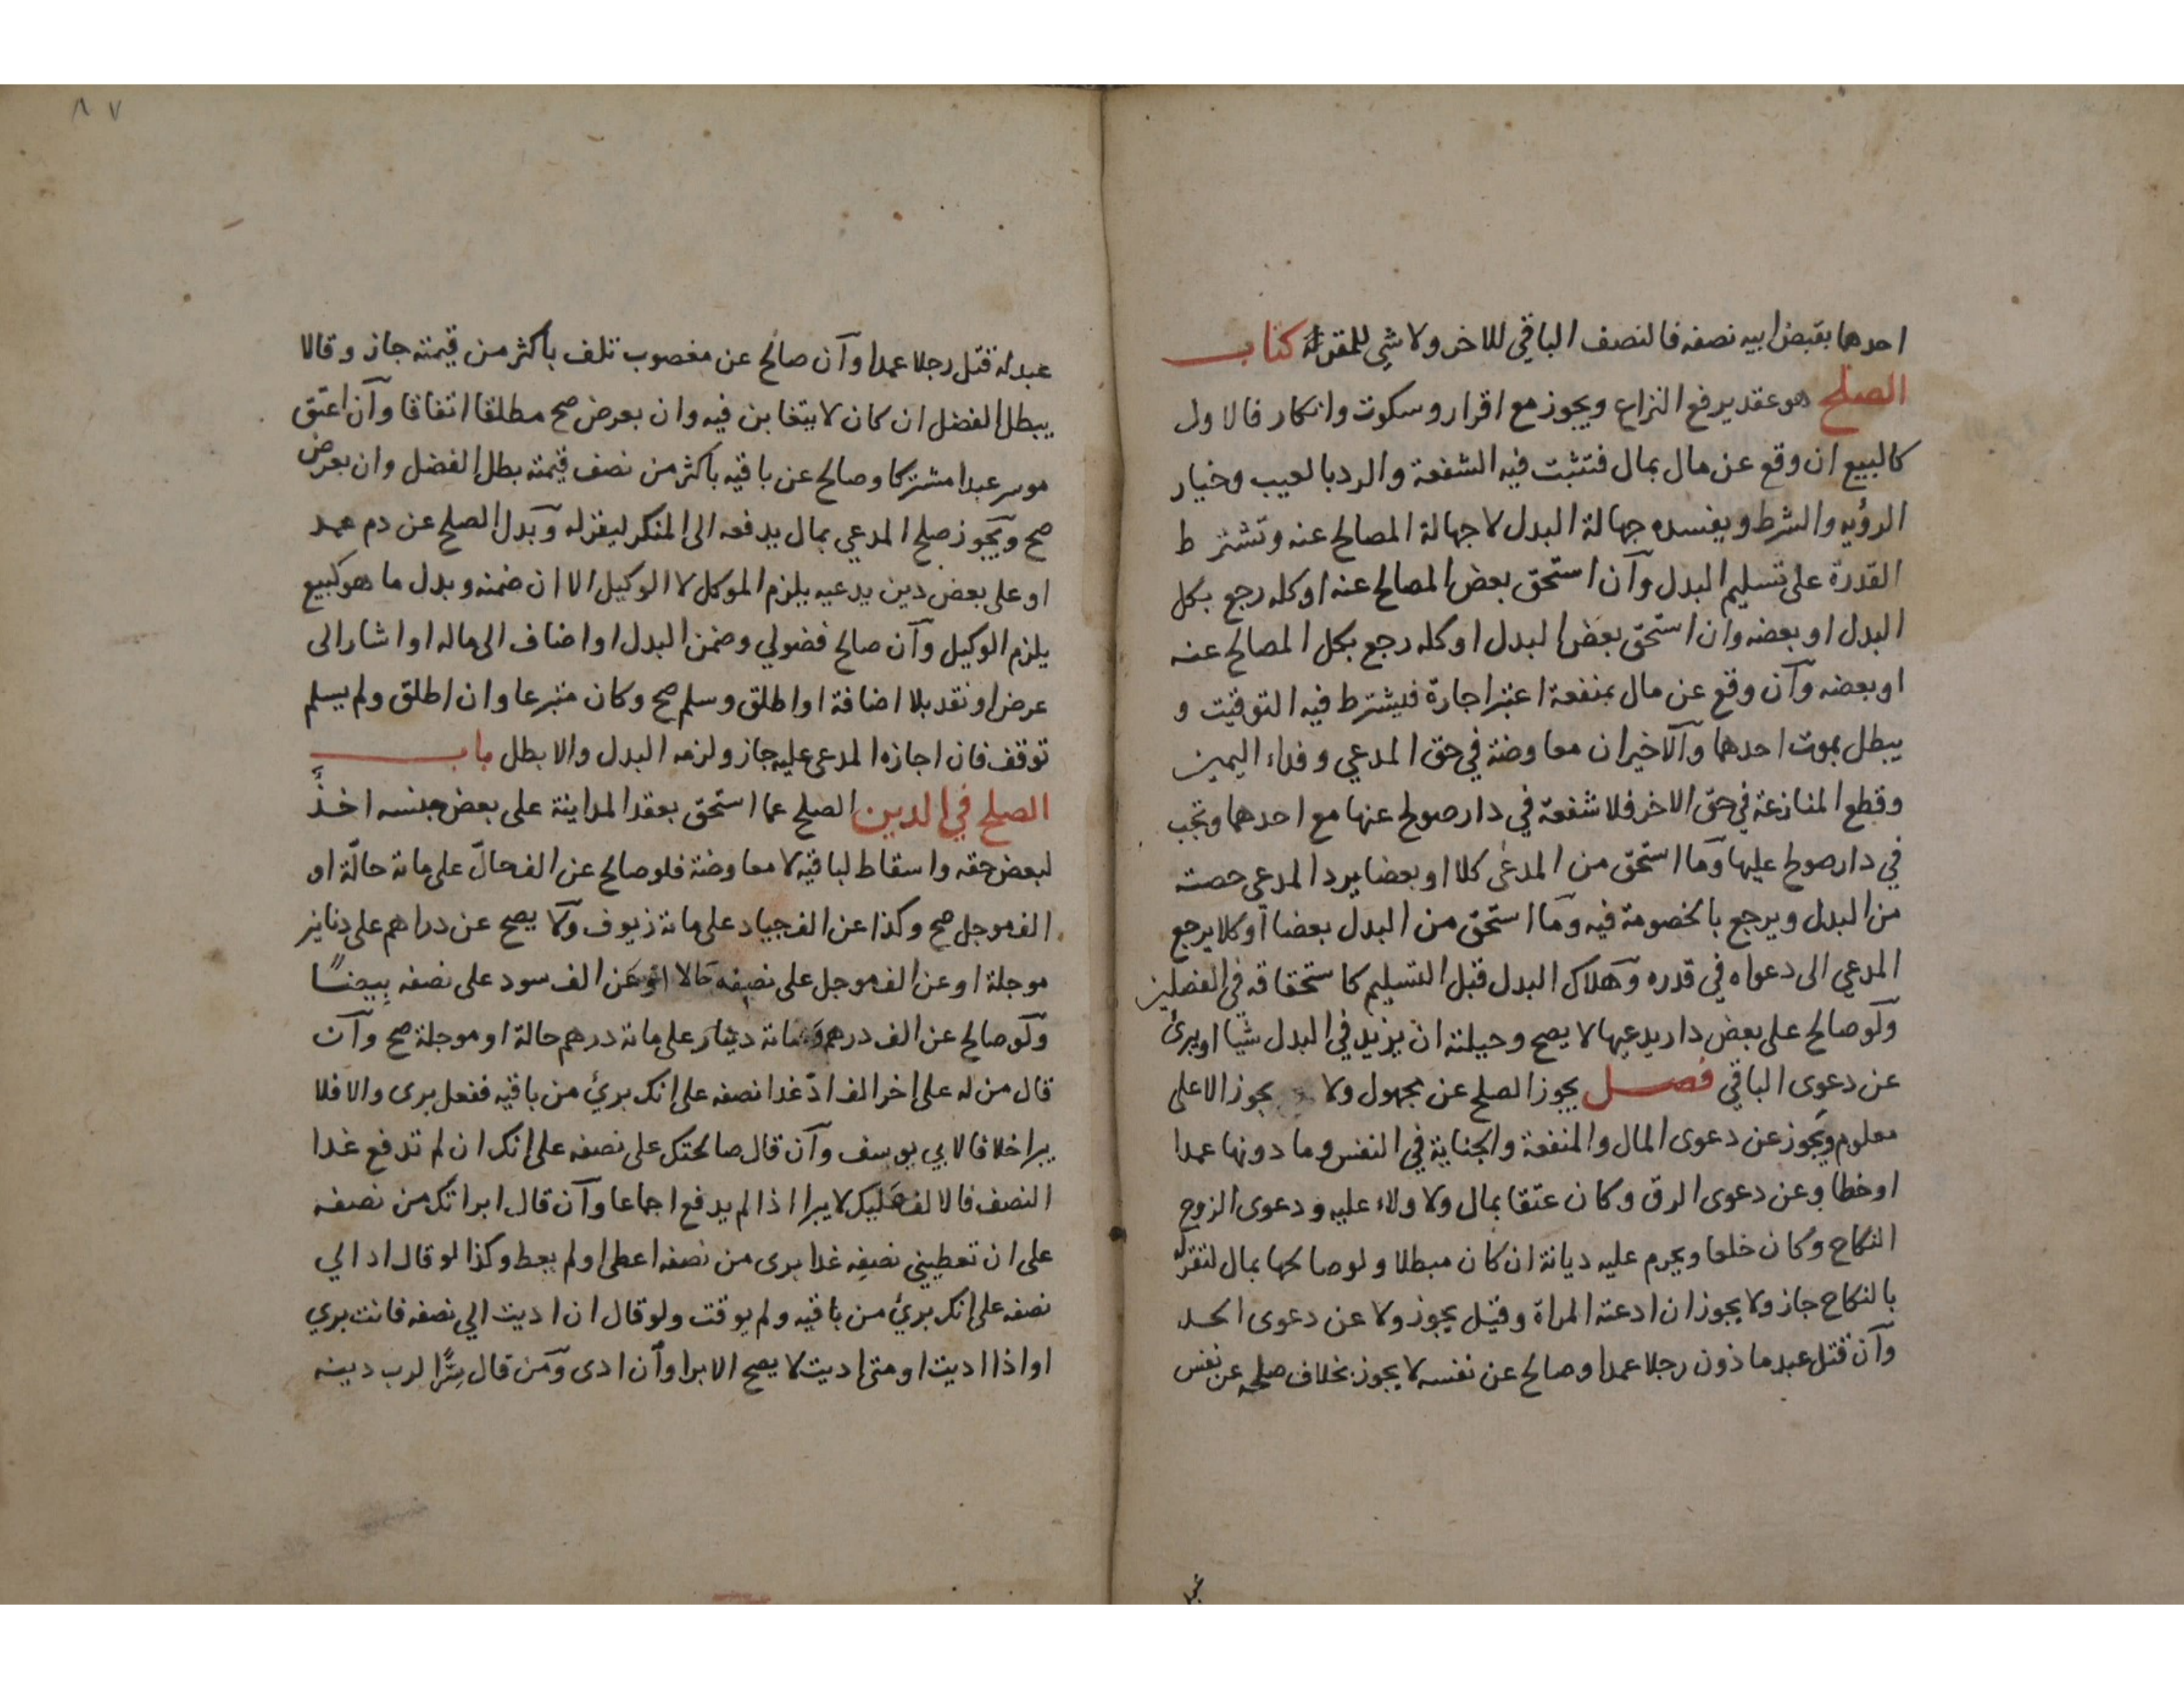 احدهما بقبض ابيه نصفه فالنصف الباقي للاخر ولا شي للمقر له كتاب
الصلح هو عقد يرفع النزاع ويجوز مع اقرار وسكوت وانكار فالاول
كالبيع ان وقع عن مال بمال فتثبت فيه الشفعة والرد بالعيب وخيار
الرؤيه والشرط ويفسده جهالة البدل لا جهالة المصالح عنه وتشترط
القدرة على تسليم البدل وآن استحق بعض المصالح عنه اوكله رجع بكل
البدل او بعضه وان استحق بعض البدل اوكله رجع بكل المصالح عنه
او بعضه وآن وقع عن مال بمنفعة اعتبر اجارة فيشترط فيه التوقيت و
يبطل بموت احدهما وآلاخيران معاوضة في حق المدعي وفداء اليمين
وقطع المنازعة في حق الاخر فلا شفعة في دار صولح عنها مع احدهما وتجب
في دار صولح عليها وما استحق من المدعى كلا او بعضا يرد المدعي حصته
من البدل ويرجع بالخصومة فيه وما استحق من البدل بعضا اوكلا يرجع
المدعي الى دعواه في قدره وهلاك البدل قبل التسليم كاستحقاقه في الفصلين
ولو صالح على بعض دار يدعيها لا يصح وحيلته ان يزيد في البدل شيا او يبرئ
عن دعوى الباقي فصل يجوز الصلح عن مجهول ولا يجوز الا على
معلوم ويجوز عن دعوى المال والمنفعة والجناية في النفس وما دونها عمدا
او خطا وعن دعوى الرق وكان عتقا بمال ولا ولاء عليه ودعوى الزوج
النكاح وكان خلعا ويحرم عليه ديانة ان كان مبطلا ولو صالحها بمال لتقر له
بالنكاح جاز ولا يجوز ان ادعته المراة وقيل يجوز ولا عن دعوى الحد
وآن قتل عبد ماذون رجلا عمدا وصالح عن نفسه لا يجوز بخلاف صلحه عن نفس
٨٧
عبد له قتل رجلا عمدا وآن صالح عن مغصوب تلف باكثر من قيمته جاز وقالا
يبطل الفضل ان كان لا يتغابن فيه وان بعرض صح مطلقا اتفاقا وآن اعتق
موسر عبدا مشتركا وصالح عن باقيه باكثر من نصف قيمته بطل الفضل وان بعرض
صح ويجوز صلح المدعي بمال يدفعه الى المنكر ليقر له وبدل الصلح عن دم عمد
او على بعض دين يدعيه يلزم الموكل لا الوكيل الا ان ضمنه وبدل ما هو كبيع
يلزم الوكيل وآن صالح فضولي وضمن البدل او اضاف الى ماله او اشار الى
عرض او نقد بلا اضافة او اطلق وسلم صح وكان متبرعا وان اطلق ولم يسلم
توقف فان اجازه المدعى عليه جاز ولزمه البدل والا بطل باب
الصلح في الدين الصلح عما استحق بعقد المداينة على بعض جنسه اخذٌ
لبعض حقه واسقاط لباقيه لا معاوضة فلو صالح عن الف حالّ على مائة حالّة او
الف موجل صح وكذا عن الف جياد على مائة زيوف ولا يصح عن دراهم على دنانير
موجلة او عن الف موجل على نصفه حالا او عن الف سود على نصفه بيضًا
ولو صالح عن الف درهم ومائة دينار على مائة درهم حالة او موجلة صح وآن
قال من له على اخر الف ادّ غدا نصفه على انك بريئ من باقيه ففعل برى والا فلا
يبرا خلافا لابي يوسف وآن قال صالحتك على نصفه على انك ان لم تدفع غدا
النصف فالالف عليك لا يبرا اذا لم يدفع اجماعا وآن قال ابراتك من نصفه
على ان تعطيني نصفه غدا برى من نصفه اعطى او لم يعط وكذا لو قال اد الي
نصفه على انك بريئ من باقيه ولم يوقت ولو قال ان اديت الي نصفه فانت بري
او اذا اديت او متى اديت لا يصح الابرا وآن ادى ومن قال سرًّا لرب دينه